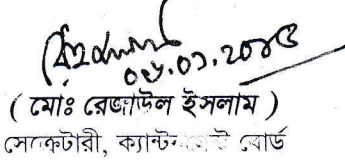 ০৬.০১.২০১৫
( মোঃ রেজাউল ইসলাম )
সেক্রেটারী, ক্যান্টনমেন্ট বোর্ড